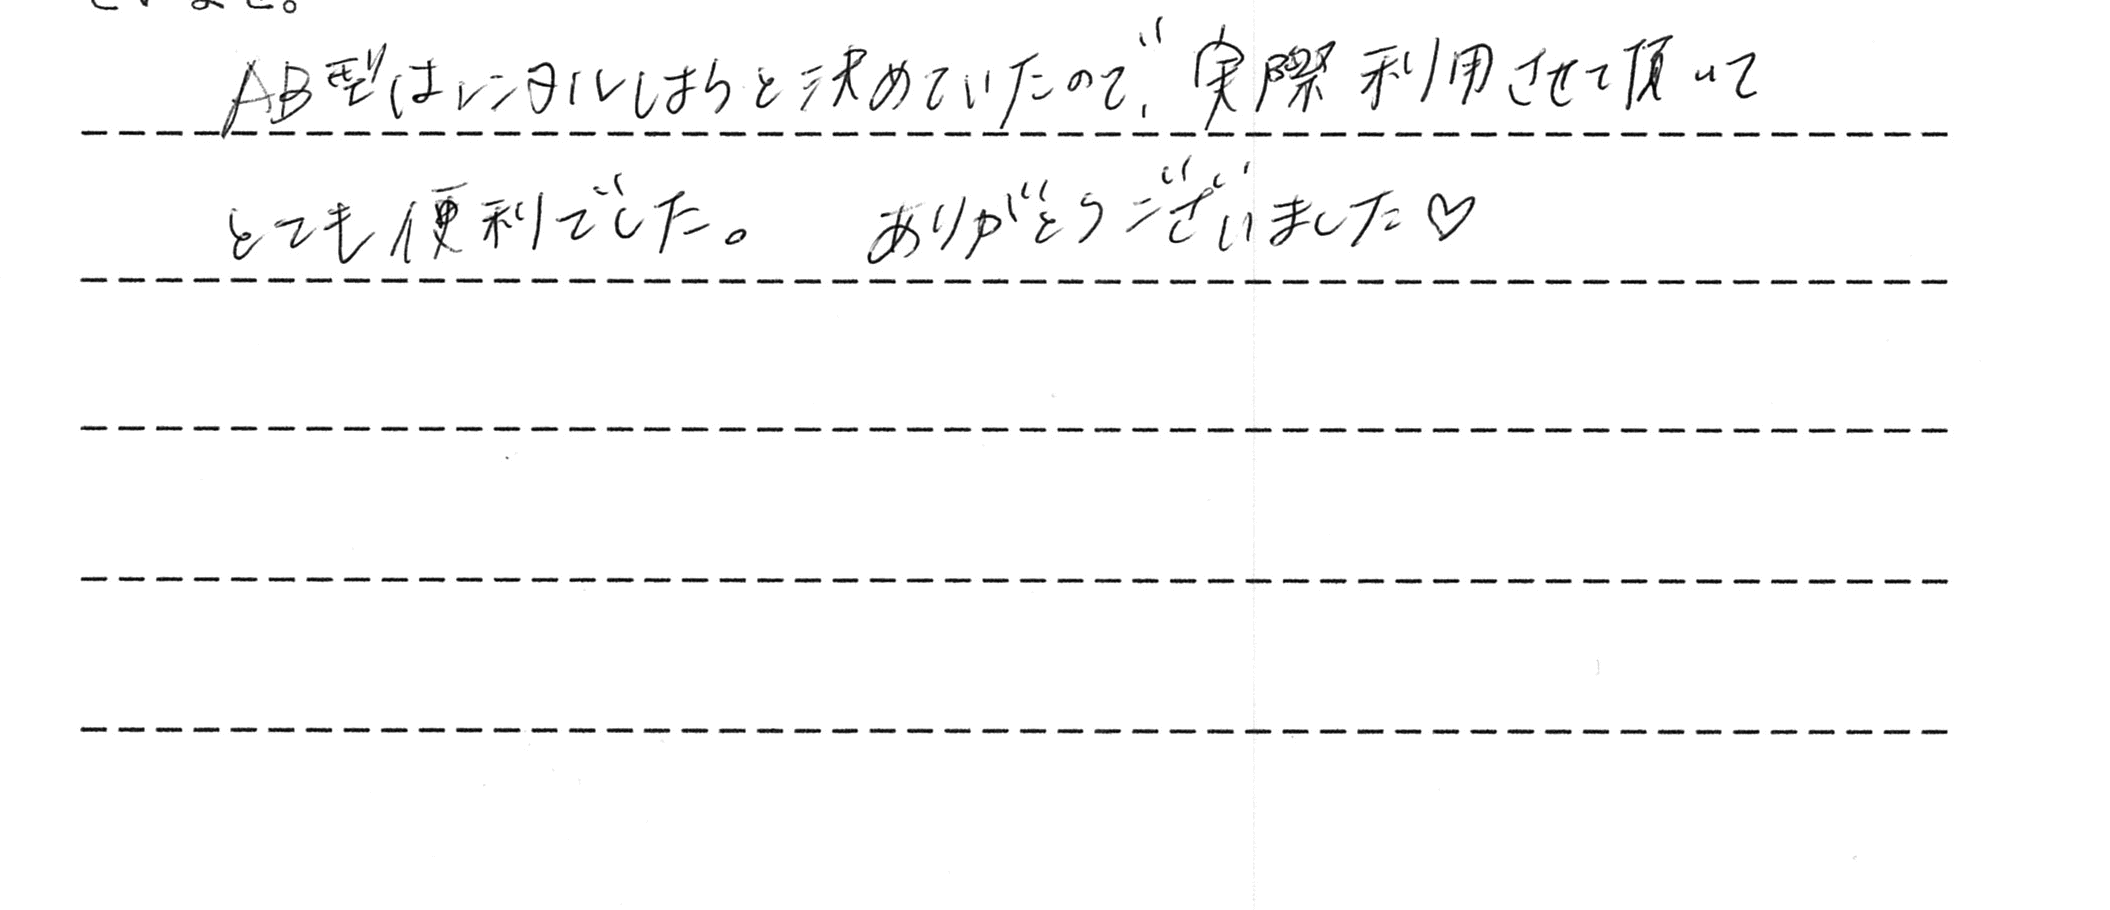 AB型はレンタルしようと決めていたので、実際利用させて頂いて
とても便利でした。 ありがとうございました♡